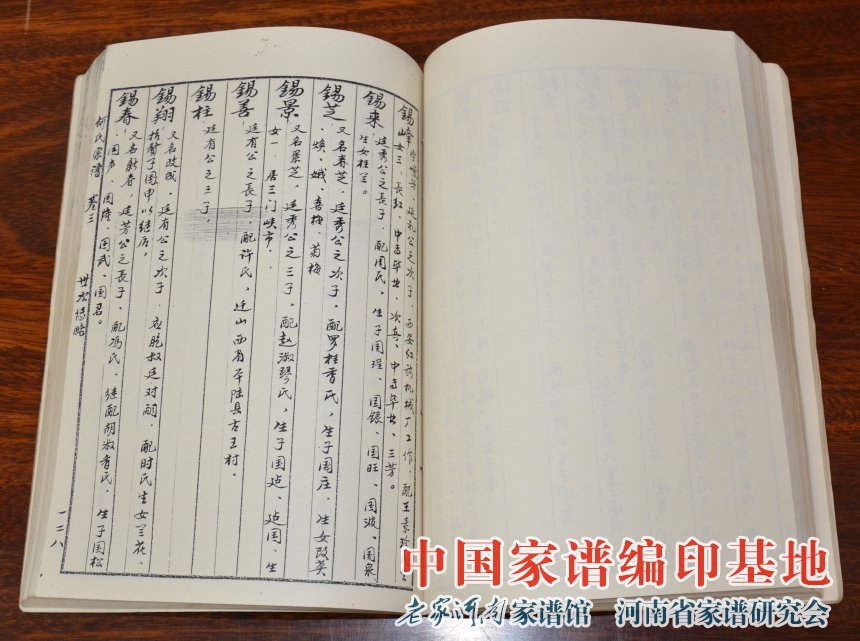 锡峰 廷礼公之次子，西安红旗机械厂工作，配王景
女三，长红，中专毕业、次真，中专毕业、三芳。
锡来 廷秀公之长子，配周氏，生子国理、国银、国旺、国波、国泉
生女桂兰。
锡芝 又名春芝，廷秀公之次子，配罗桂香氏，生子国庄，生女改英
焕、娥、喜梅、菊梅
锡景 又名景芝，廷秀公之三子，配赵淑琴氏，生子国
女一，居三门峡市，
锡善 廷有公之长子，配许氏，迁山西省平陆县古王村。
锡柱 廷有公之三子，
锡翔 又名改成，廷有公之次子，应胞叔廷对嗣，配时氏生女兰花，
子国申以继后，
锡春 又名新春，廷芳公之长子，配冯氏，继配胡淑香氏，生子国松
国声、国隆、国武、国君。
何氏家谱 卷三 世次传略 一二八
中国家谱编印基地
老家河南家谱馆 河南省家谱研究会